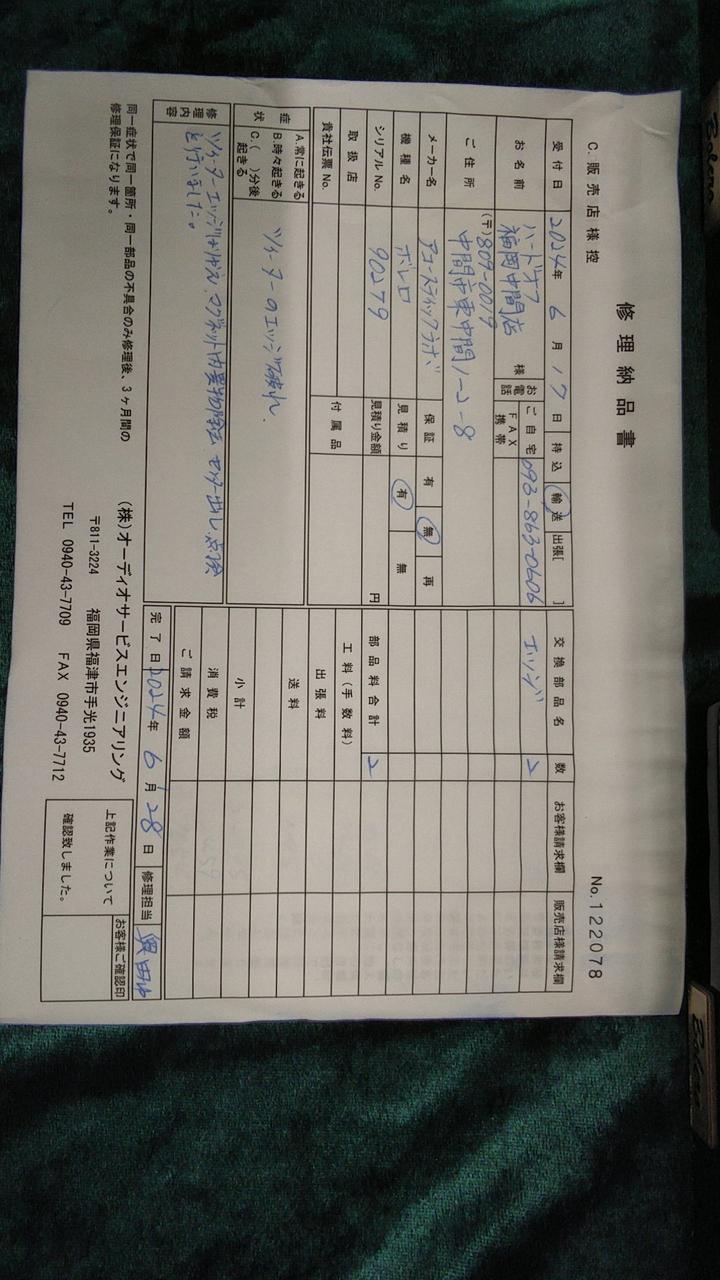 修理納品書
No.122078
C.販売店様控
受付日 2024年 6月 17日 持込 輸送 出張[ ]
お名前 ハードオフ 福岡中間店 様
お電話 ご自宅 093-863-0606
FAX
携帯
ご住所 (〒)809-0019
中間市東中間1-2-8
メーカー名 アコースティックラボ 保証 有 無 再
機種名 ボレロ 見積り 有 無
シリアルNo. 90279 見積り金額 円
取扱店 付属品
貴社伝票No.
症状 A.常に起きる
B.時々起きる
C.( )分後
起きる
ツイーターのエッジ破れ.
修理内容 ツイーターエッジはりかえ.マグネット内異物除去 センター出し点検
を行いました。
交換部品名 数 お客様請求欄 販売店様請求欄
エッジ 2
部品料合計 2
工料(手数料)
出張料
送料
小計
消費税
ご請求金額
完了日 2024年 6月 28日 修理担当
同一症状で同一箇所・同一部品の不具合のみ修理後、3ヶ月間の
修理保証になります。
(株)オーディオサービスエンジニアリング
〒811-3224 福岡県福津市手光1935
TEL 0940-43-7709 FAX 0940-43-7712
上記作業について
確認致しました。
お客様ご確認印
Bolero